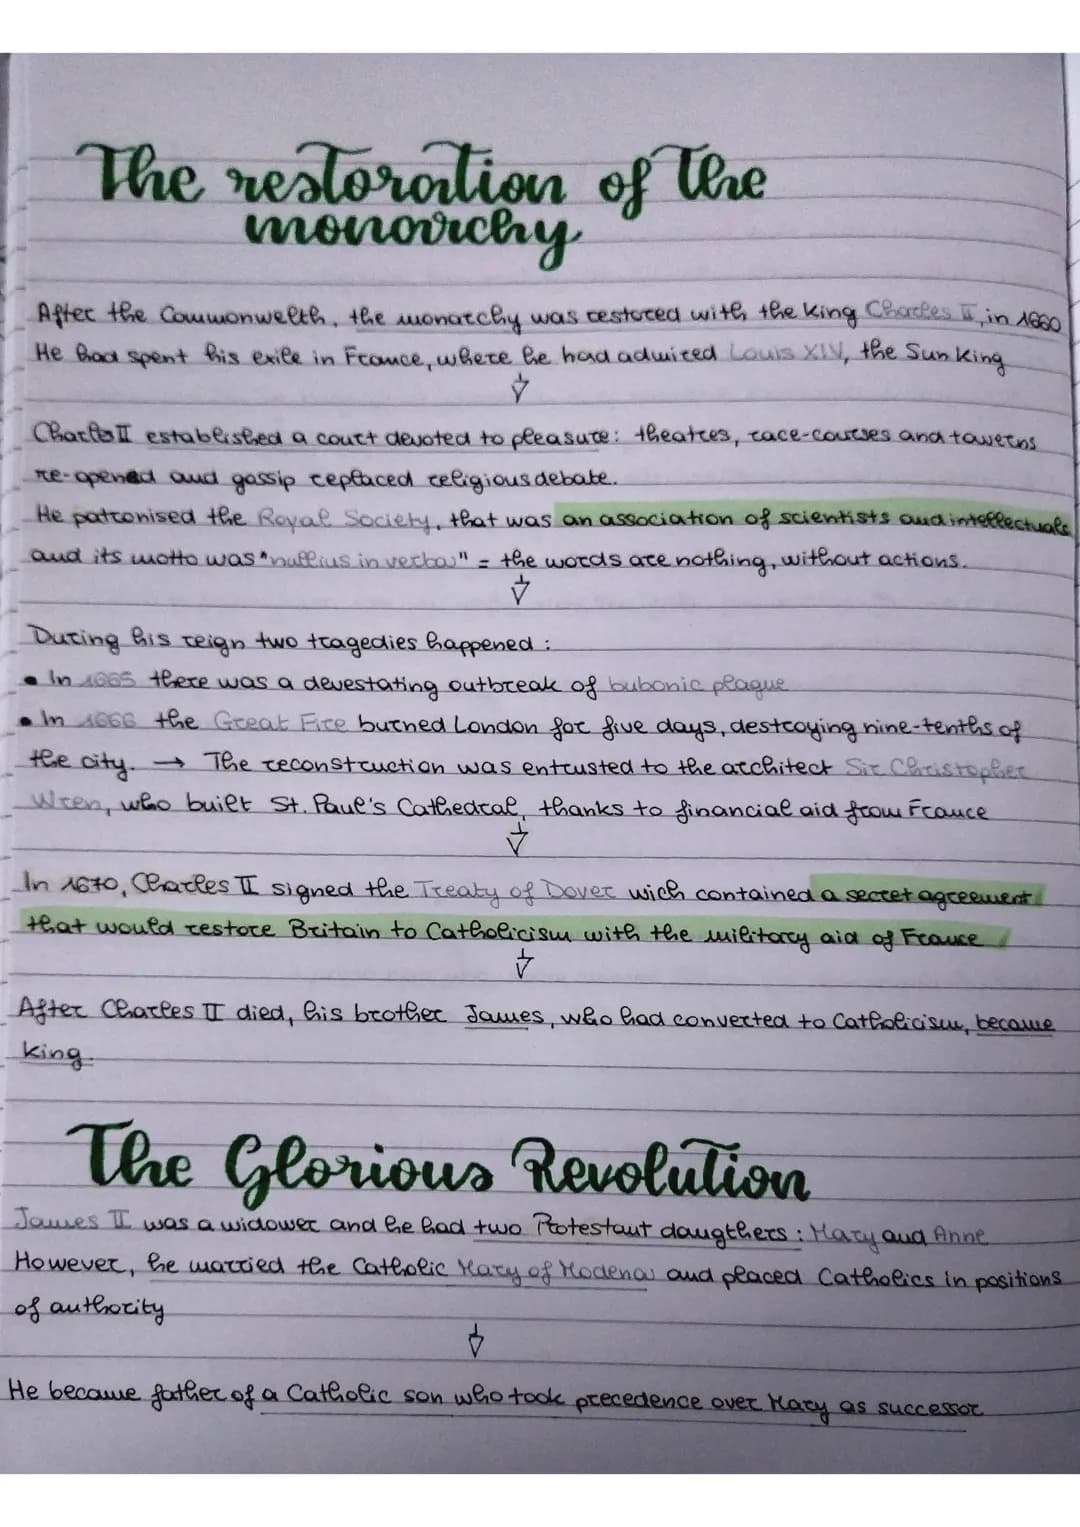 The restoration of the
monarchy
After the Commonwelth, the monarchy was restored with the king Charles II, in 1660
He had spent his exile in France, where he had admired Louis XIV, the Sun King
Charles II established a court devoted to pleasure: theatres, race-courses and tawerns
re-opened and gossip replaced religious debate.
He patronised the Royal Society, that was an association of scientists and intellectuals
and its motto was "nullius in verba" = the words are nothing, without actions.
During his reign two tragedies happened:
• In 1665 there was a devestating outbreak of bubonic plague
• In 1666 the Great Fire burned London for five days, destroying nine-tenths of
the city. → The reconstruction was entrusted to the architect Sir Christopher
Wren, who built St. Paul's Cathedral, thanks to financial aid from France
In 1670, Charles II signed the Treaty of Dover wich contained a secret agreement
that would restore Britain to Catholicism with the military aid of France
After Charles II died, his brother James, who had converted to Catholicism, became
king.
The Glorious Revolution
James II was a widower and he had two Protestant daugthers: Mary and Anne
However, he married the Catholic Mary of Modena and placed Catholics in positions
of authority
He became father of a Catholic son who took precedence over Mary as successor